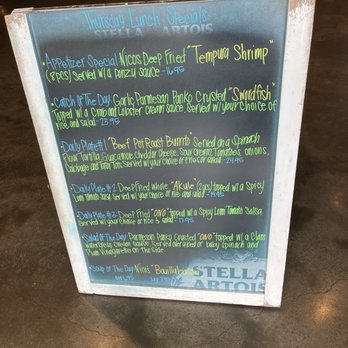 Thursday Lunch Specials
STELLA ARTOIS
•Appetizer Special Nicos Deep Fried "Tempura Shrimp"
(8pcs) Served w/a Ponzu sauce -16.95
•Catch Of The Day Garlic Parmesan Panko Crusted "Swordfish"
Topped w/a Crab and Lobster Cream Sauce, Served w/your Choice of
rice and salad -23.95
•Daily Plate #1 "Beef Pot Roast Burrito" Served on a Spinach
Flour Tortilla, Guacamole, Cheddar Cheese, Sour Cream, Tomatoes, onions,
Cabbage and Served w/your choice of
•Daily Plate #2 Deep Fried Whole "Akule" (2pcs) Topped w/a Spicy
Lomi Tomato Salsa Served w/your Choice of rice and salad
•Daily Plate #3 Deep Fried "Ono" topped w/a Spicy Lomi Tomato Salsa,
Served w/your choice of rice & salad
•Salad Of The Day Parmesan Panko Crusted "Ono" topped w/a Clam
Watercress Cream Sauce Served over a bed of baby spinach and
Vinaigrette on the side
•Soup Of The Day Nicos "Bouillabaisse"
STELLA
ARTOIS